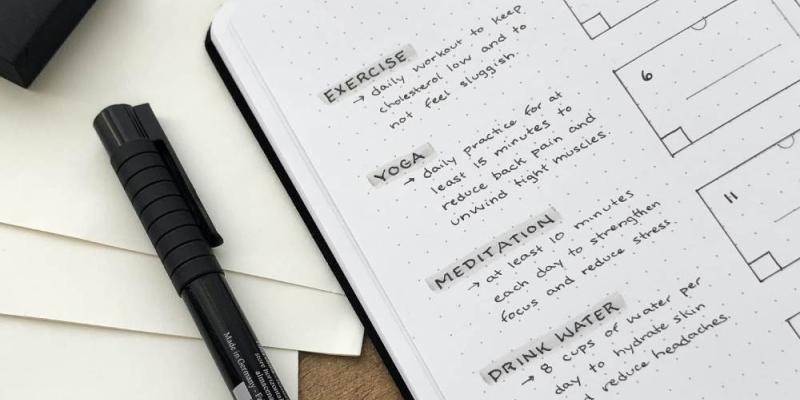 EXERCISE
→ daily workout to keep
cholesterol low and to
not feel sluggish.
YOGA
→ daily practice for at
least 15 minutes to
reduce back pain and
unwind tight muscles.
MEDITATION
→ at least 10 minutes
each day to strengthen
focus and reduce stress.
DRINK WATER
→ 8 cups of water per
day to hydrate skin
and reduce headaches.
6
11
Made in Germany
store horizontal